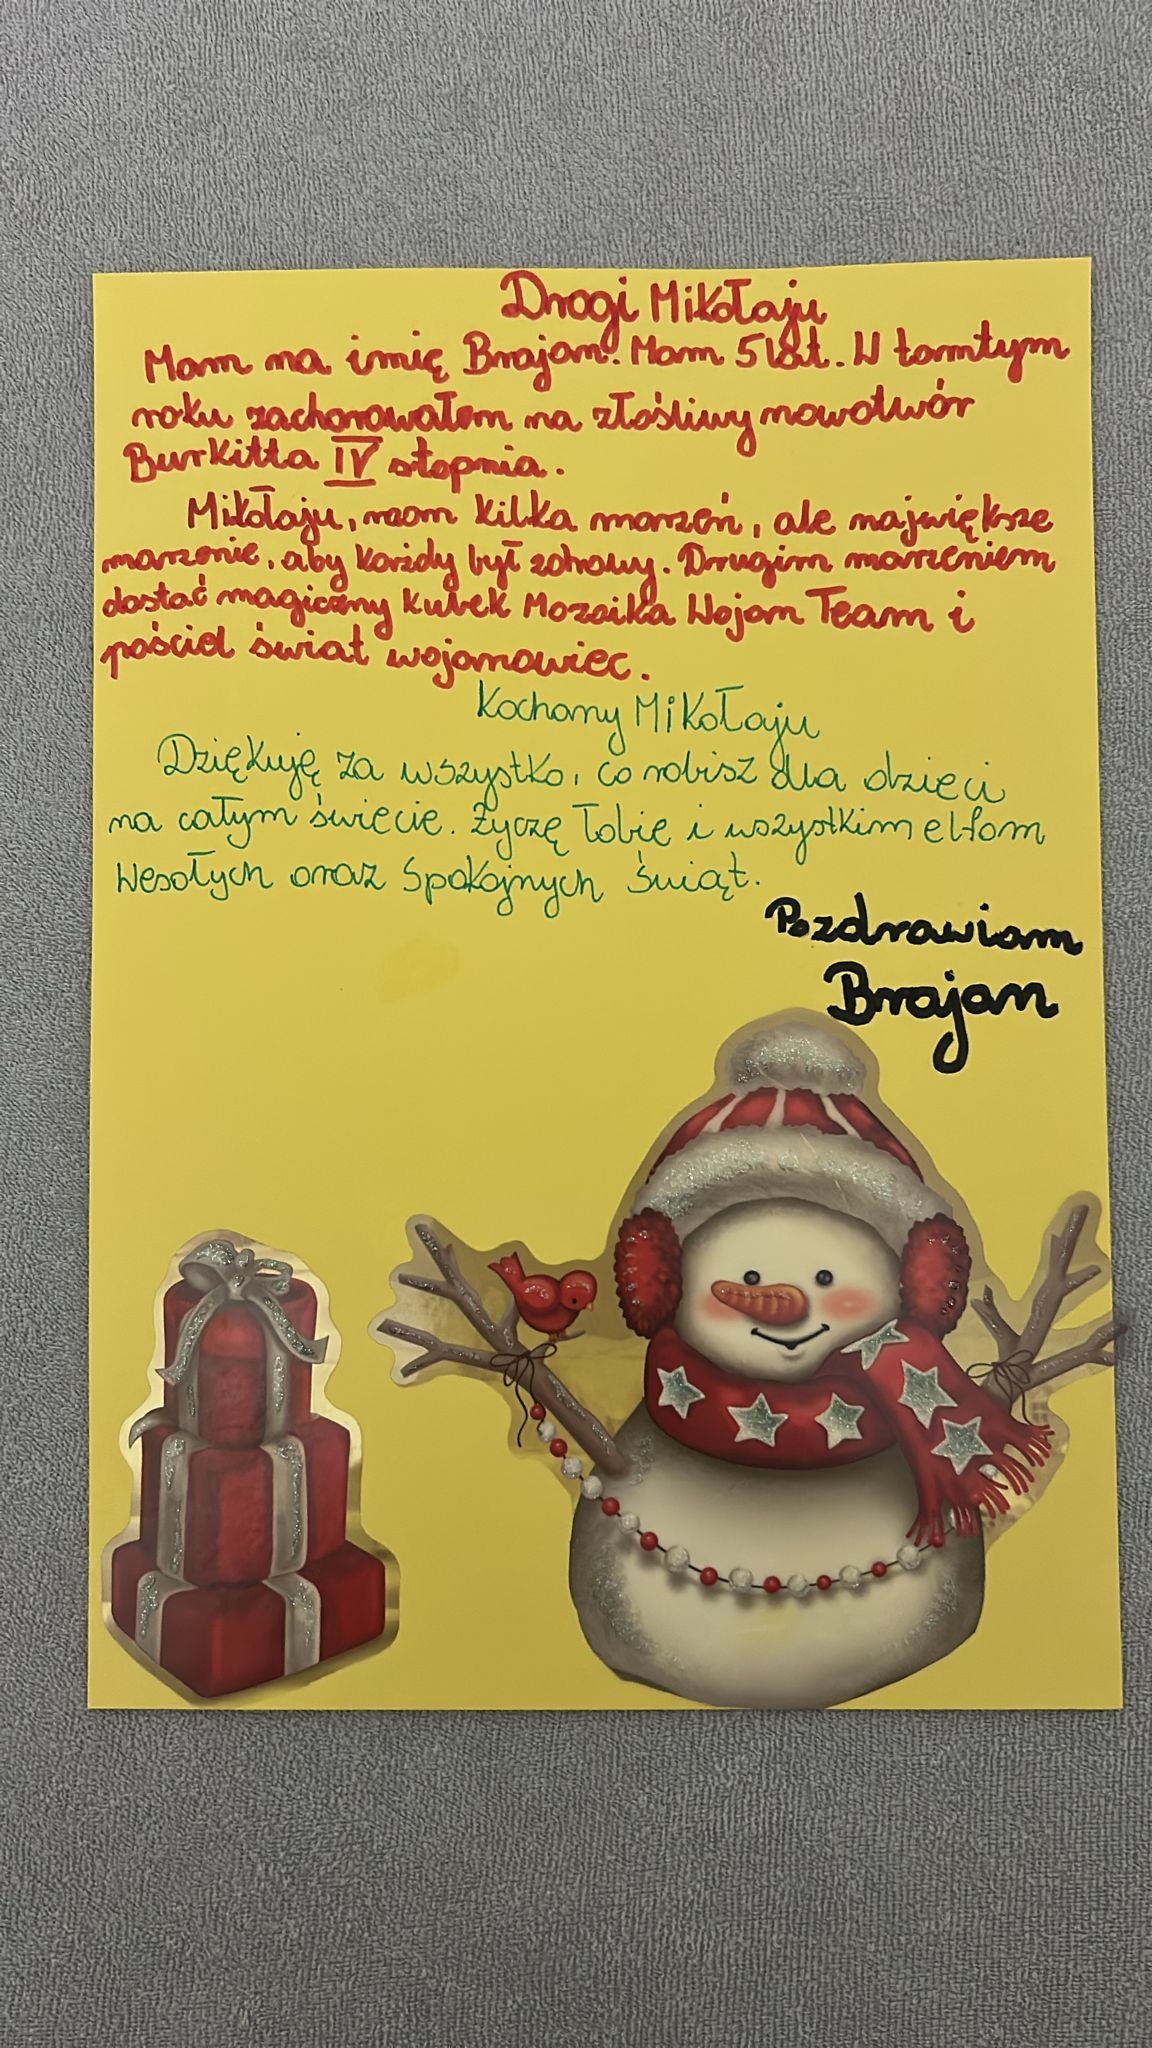 Drogi Mikołaju
Mam na imię Brajan. Mam 5 lat. W tamtym
roku zachorowałem na złośliwy nowotwór
Burkitta IV stopnia.
Mikołaju, mam kilka marzeń, ale największe
marzenie, aby każdy był zdrowy. Drugim marzeniem
dostać magiczny kubek Mozaika Wojan Team i
pościel świat wojanowiec.
Kochany Mikołaju
Dziękuję za wszystko, co robisz dla dzieci
na całym świecie. Życzę Tobie i wszystkim elfom
Wesołych oraz Spokojnych Świąt.
Pozdrawiam
Brajan